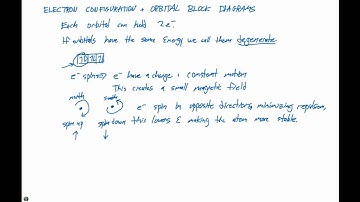 ELECTRON CONFIGURATION + ORBITAL BLOCK DIAGRAMS
Each orbital can hold 2e⁻
If orbitals have the same Energy we call them degenerate
e⁻ spins e⁻ have a charge + constant motion
This creates a small magnetic field
north south e⁻ spin in opposite directions, minimizing repulsion,
spin up spin down this lowers E making the atom more stable.